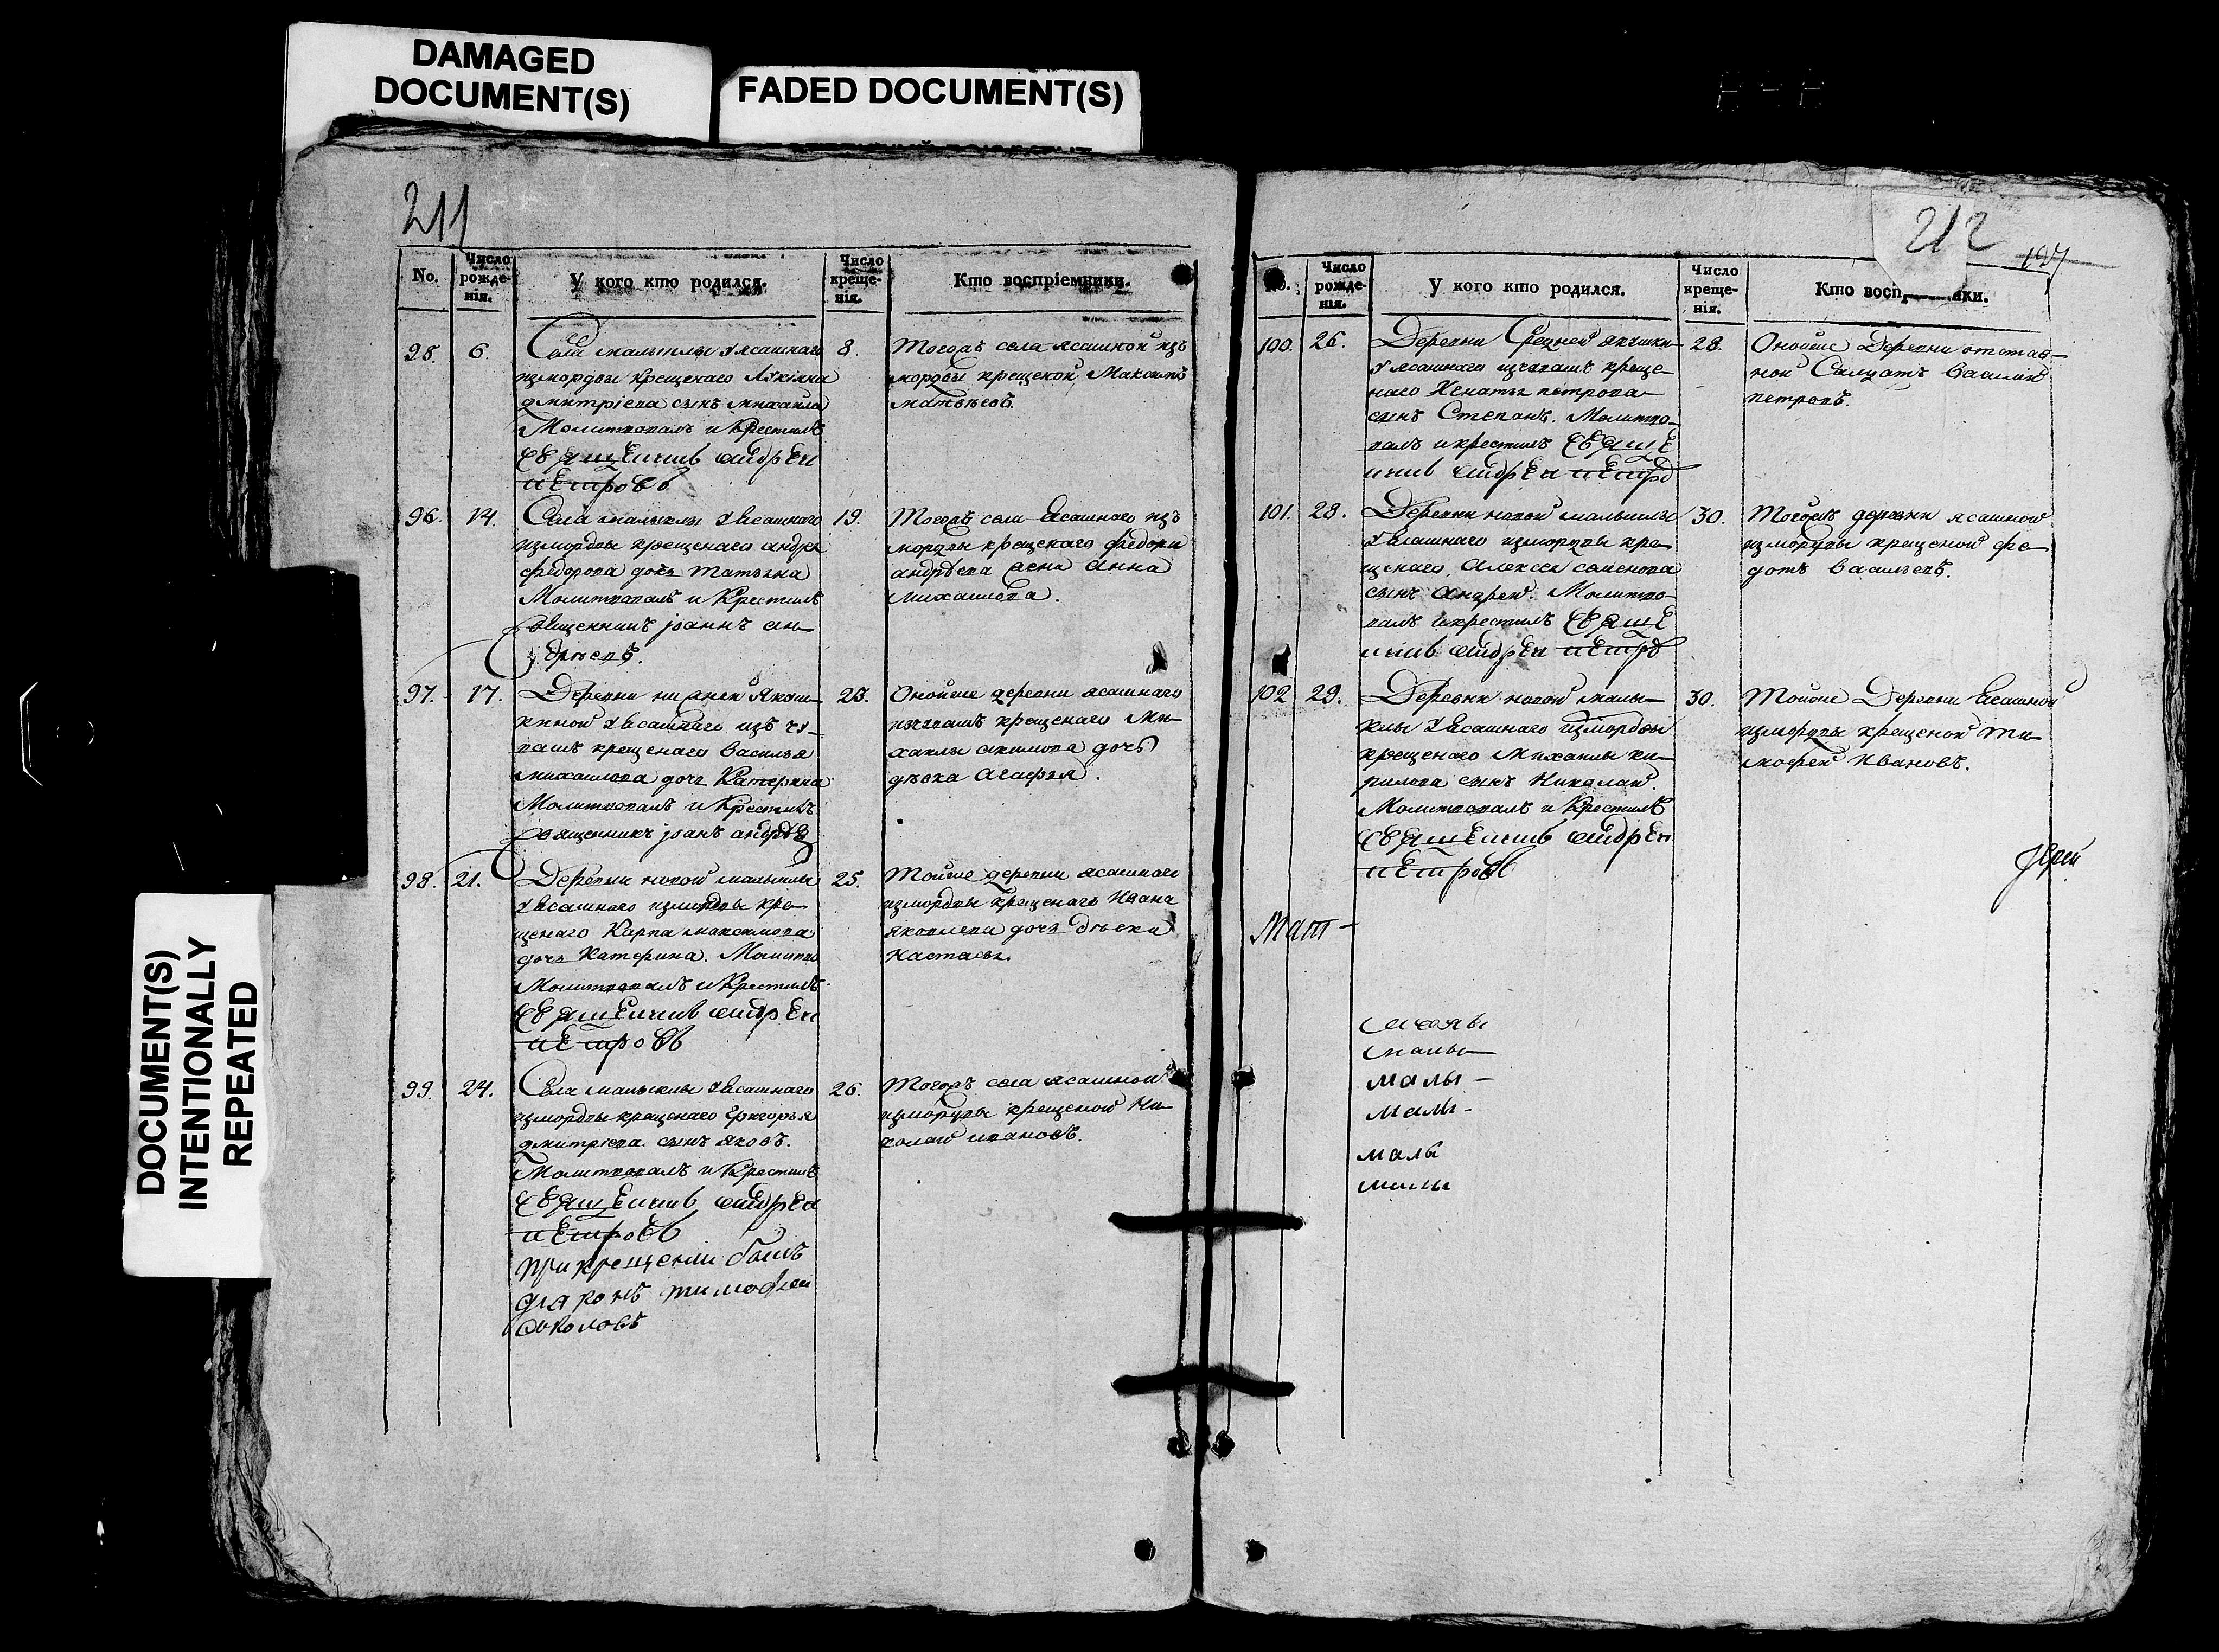 DAMAGED
DOCUMENT(S)
FADED DOCUMENT(S)
DOCUMENT(S)
INTENTIONALLY
REPEATED
211
No.
Число
рожде-
нія.
У кого кто родился.
Число
креще-
нія.
Кто воспріемники.
6.
Села малыклы у ясашнаго
измордвы крещенаго
дмитріева сынъ михаила
Молитвовалъ и крестилъ
священникъ андреи
петровъ
8.
Тогожъ села ясашной изъ
мордвы крещеной Максимъ
матвѣевъ.
96. 14.
Села малыклы у ясашнаго
измордвы крещенаго андрея
федорова дочь татьяна
Молитвовалъ и крестилъ
священникъ іоаннъ ан-
дрѣевъ.
19.
Тогожъ села ясашнаго изъ
мордвы крещенаго федора
андрѣева жена анна
михаилова.
97. 17.
Деревни нижней Якуш-
киной у ясашнаго изъ чу-
вашъ крещенаго василья
михаилова дочь Катерина
Молитвовалъ и крестилъ
священникъ іоанъ андрѣевъ
Оной же деревни ясашнаго
изчувашъ крещенаго Ми-
хаилы акимова дочь
дѣвка агафья.
98. 21.
Деревни новой малыклы
у ясашнаго измордвы кре-
щенаго Карпа максимова
дочь Катерина. Молитво
Молитвовалъ и крестилъ
священникъ андреи
петровъ
25.
Той же деревни ясашнаго
измордвы крещенаго Ивана
яковлева дочь дѣвка
настасья
99. 24.
Села малыклы у ясашнаго
измордвы крещенаго Григорья
дмитріева сынъ яковъ.
Молитвовалъ и крестилъ
священникъ андреи
петровъ
при крещеніи былъ
діаконъ тимофеи
соколовъ
26.
Тогожъ села ясашной
измордвы крещеной Ни-
колай ивановъ.
212
No.
Число
рожде-
нія.
У кого кто родился.
Число
креще-
нія.
Кто восп ики.
100. 26.
Деревни Средней якушки
у ясашнаго изчувашъ креще-
наго Игнатья петрова
сынъ Степанъ. Молитво-
валъ и крестилъ священ
никъ андреи петров
28.
Оной же Деревни отстав-
ной Салдатъ василий
петровъ.
101. 28.
Деревни новой малыклы
у ясашнаго измордвы кре-
щенаго Алексея семенова
сынъ андрей. Молитво-
валъ и крестилъ священ
никъ андреи петров
30.
Тойжъ деревни ясашной
измордвы крещеной фе-
дотъ васильевъ.
102 29.
Деревни новой малы-
клы у ясашнаго измордвы
крещенаго Михаилы ки-
рилова сынъ Николай.
Молитвовалъ и крестилъ
священникъ андреи
петровъ
30.
Той же Деревни ясашной
измордвы крещеной ти-
мофей Ивановъ.
Іерей
малы-
малы-
малы